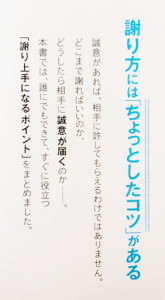 謝り方には「ちょっとしたコツ」がある
誠意があれば、相手に許してもらえるわけではありません。
どこまで謝ればいいのか、
どうしたら相手に誠意が届くのか──。
本書では、誰にでもできて、すぐに役立つ
「謝り上手になるポイント」をまとめました。